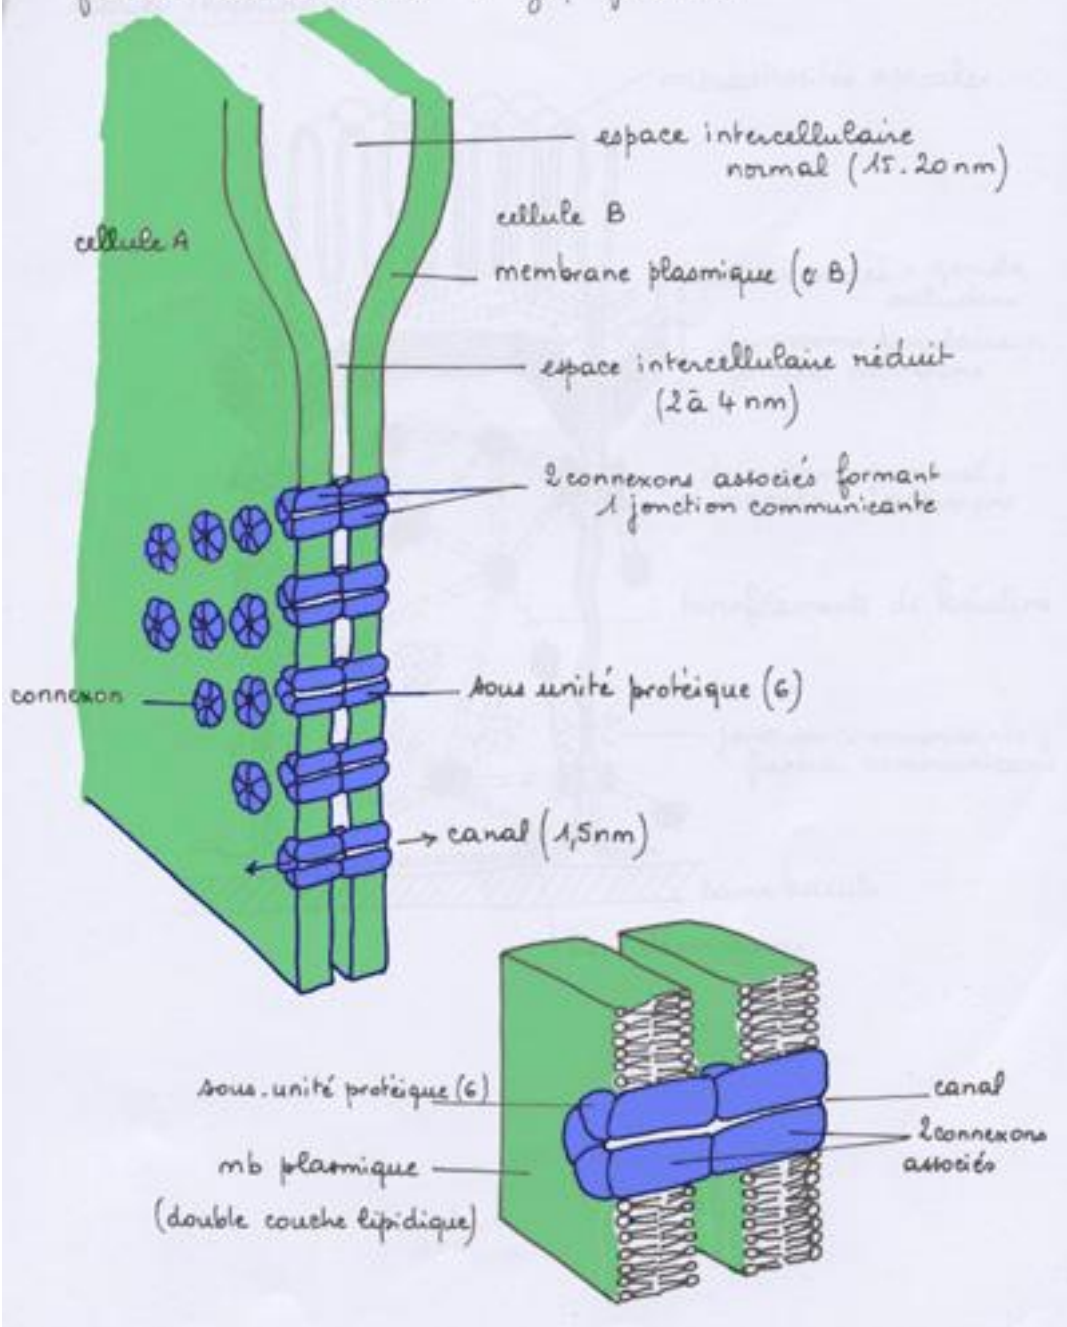 espace intercellulaire
normal (15.20 nm)
cellule A
cellule B
membrane plasmique (¢ B)
espace intercellulaire réduit
(2 à 4 nm)
2 connexons associés formant
1 jonction communicante
connexon
sous unité protéique (6)
canal (1,5nm)
sous.unité protéique (6)
canal
2 connexons
associés
mb plasmique
(double couche lipidique)